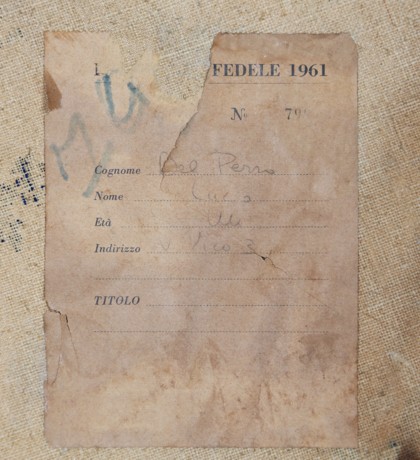 FEDELE 1961
Nº 79
Cognome Del Pezzo
Nome Lucio
Età
Indirizzo V. Vico 3
TITOLO